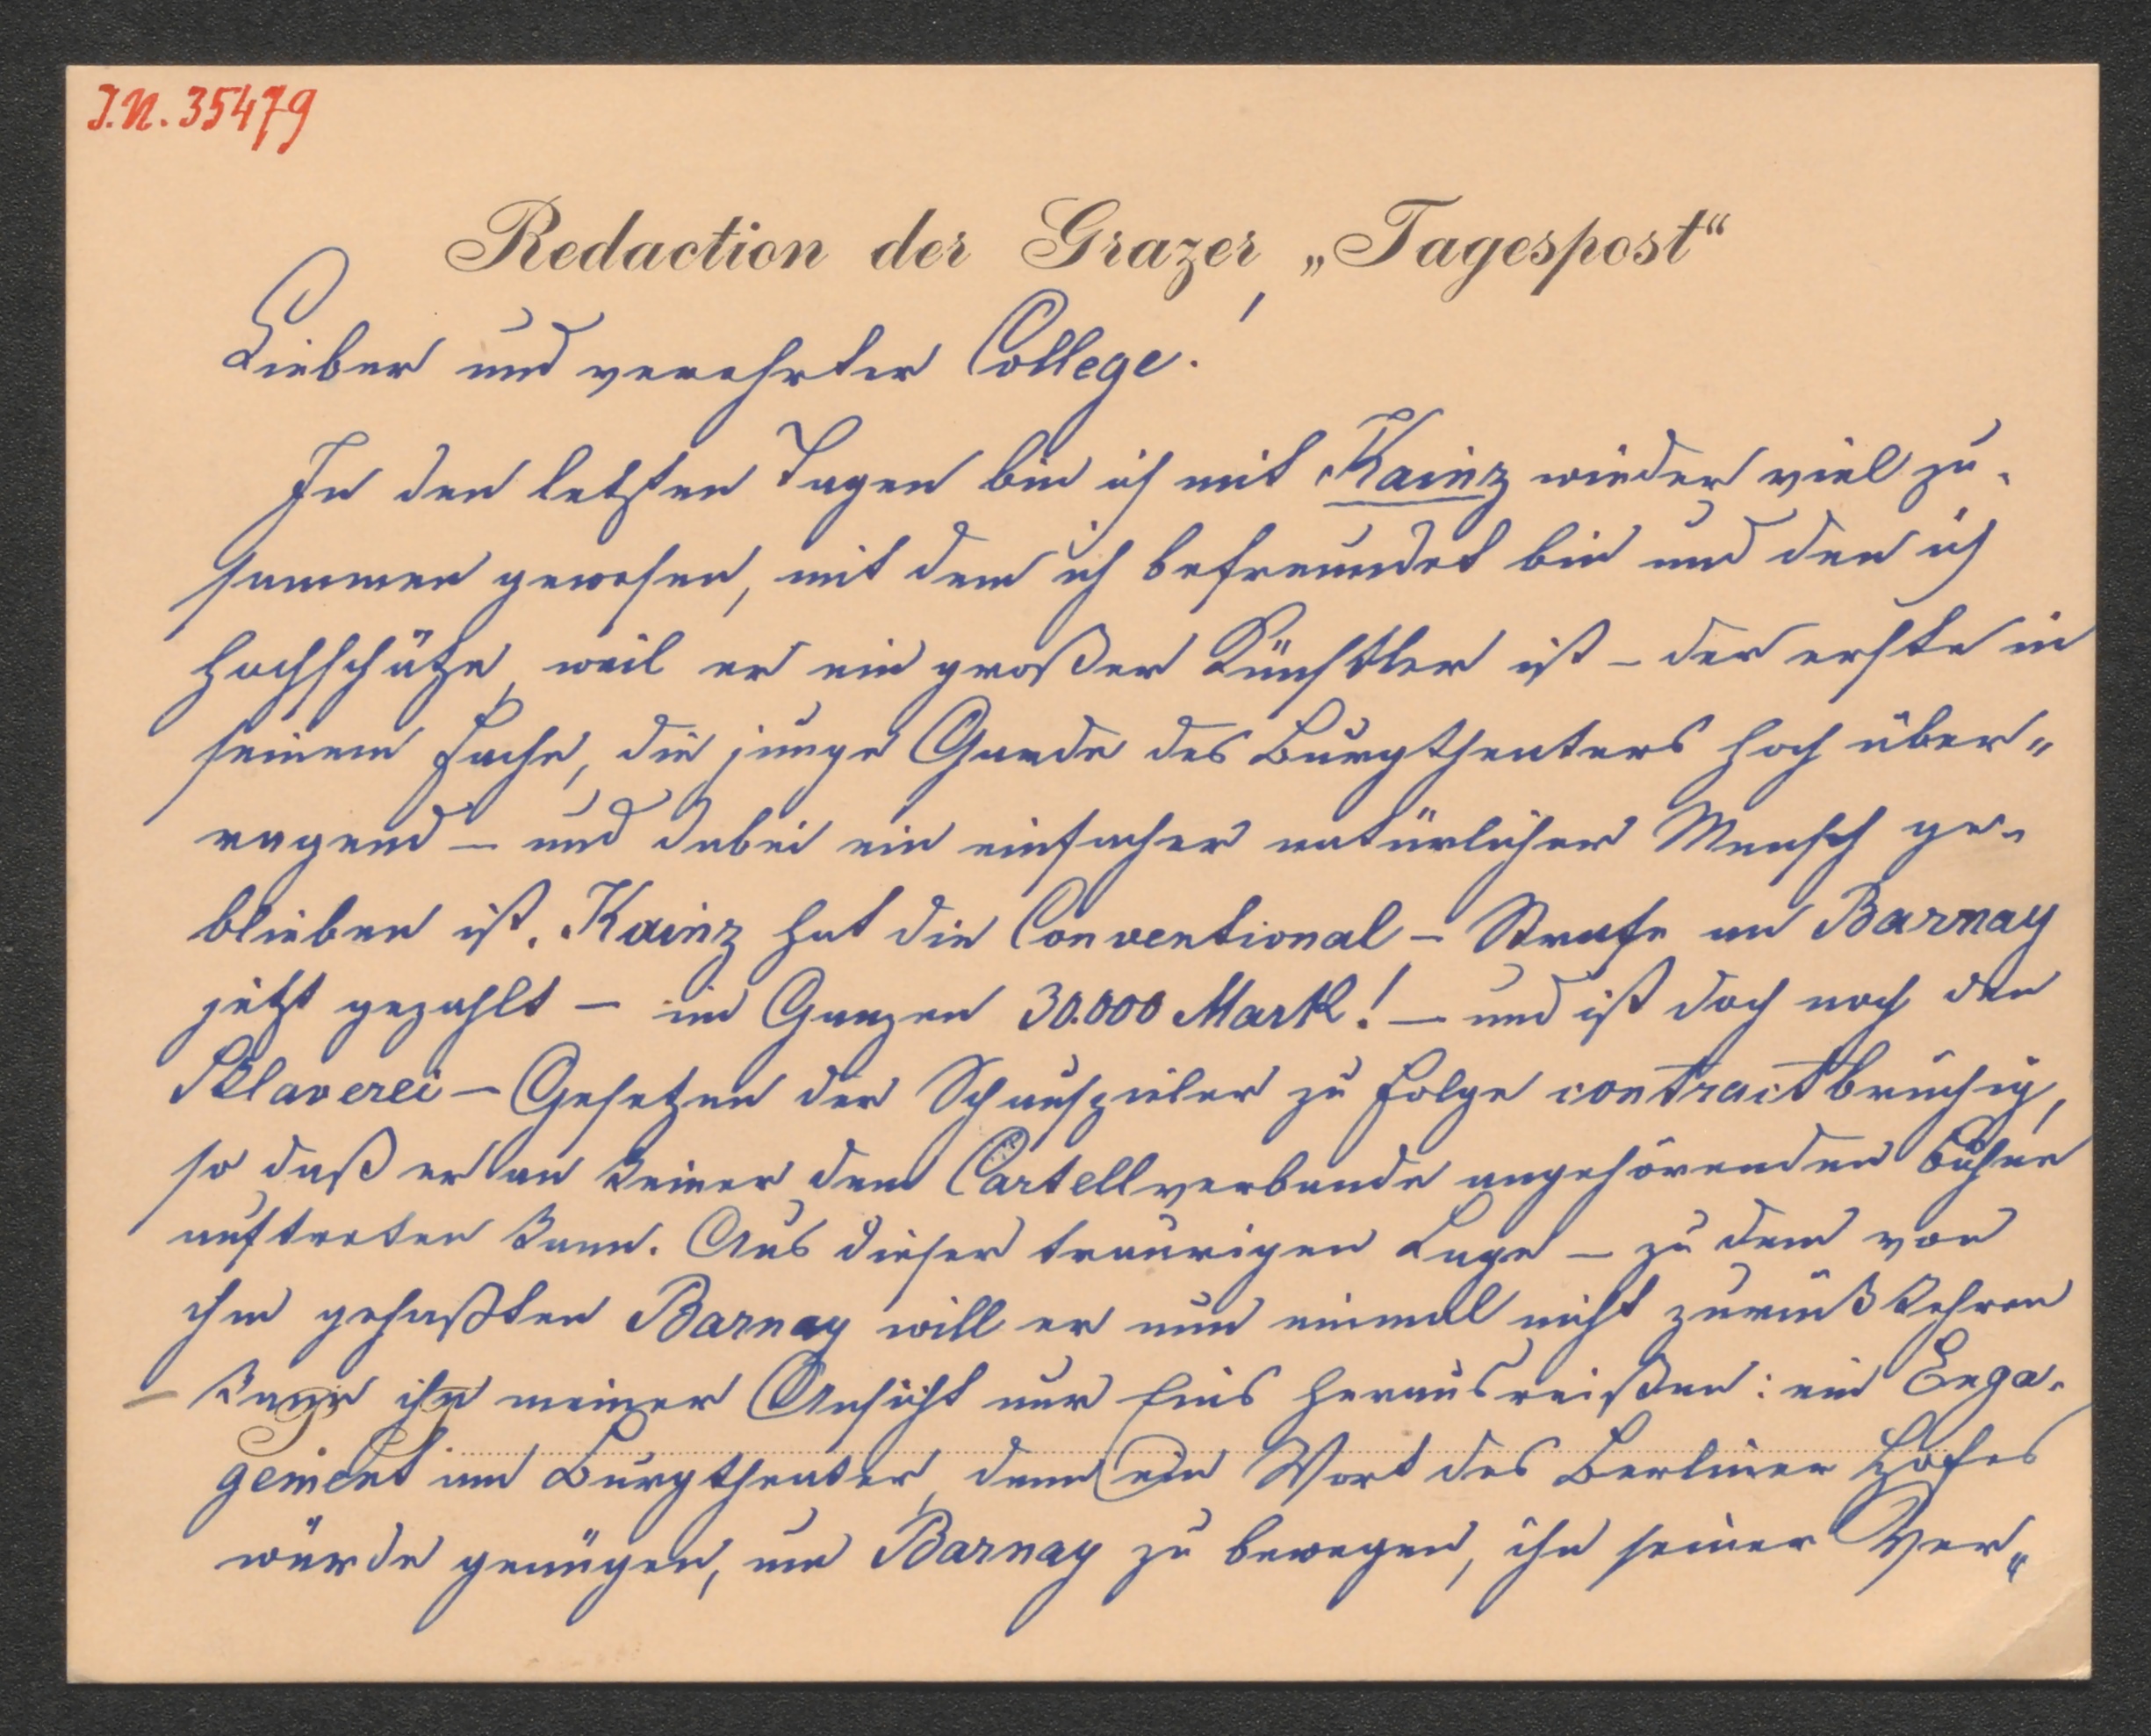 I.N. 35479
Redaction der Grazer „Tagespost“
Lieber und verehrter College!
In den letzten Tagen bin ich mit Kainz wieder viel zu-
sammen gewesen, mit dem ich befreundet bin und den ich
hochschätze, weil er ein großer Künstler ist – der erste in
seinem Fache, die junge Garde des Burgtheaters hoch über-
ragend – und dabei ein einfacher natürlicher Mensch ge-
blieben ist. Kainz hat die Conventional-Strafe an Barnay
jetzt gezahlt – im Ganzen 30.000 Mark! – und ist doch noch den
Sklaverei-Gesetzen der Schauspieler zu Folge contractbrüchig,
so daß er an keiner dem Cartellverbande angehörenden Bühne
auftreten kann. Aus dieser traurigen Lage – zu dem von
ihm gehaßten Barnay will er nun einmal nicht zurückkehren
– kann ihn meiner Ansicht nur Eins herausreißen: ein Enga-
gement am Burgtheater, denn ein Wort des Berliner Hofes
würde genügen, um Barnay zu bewegen, ihn seiner Ver-